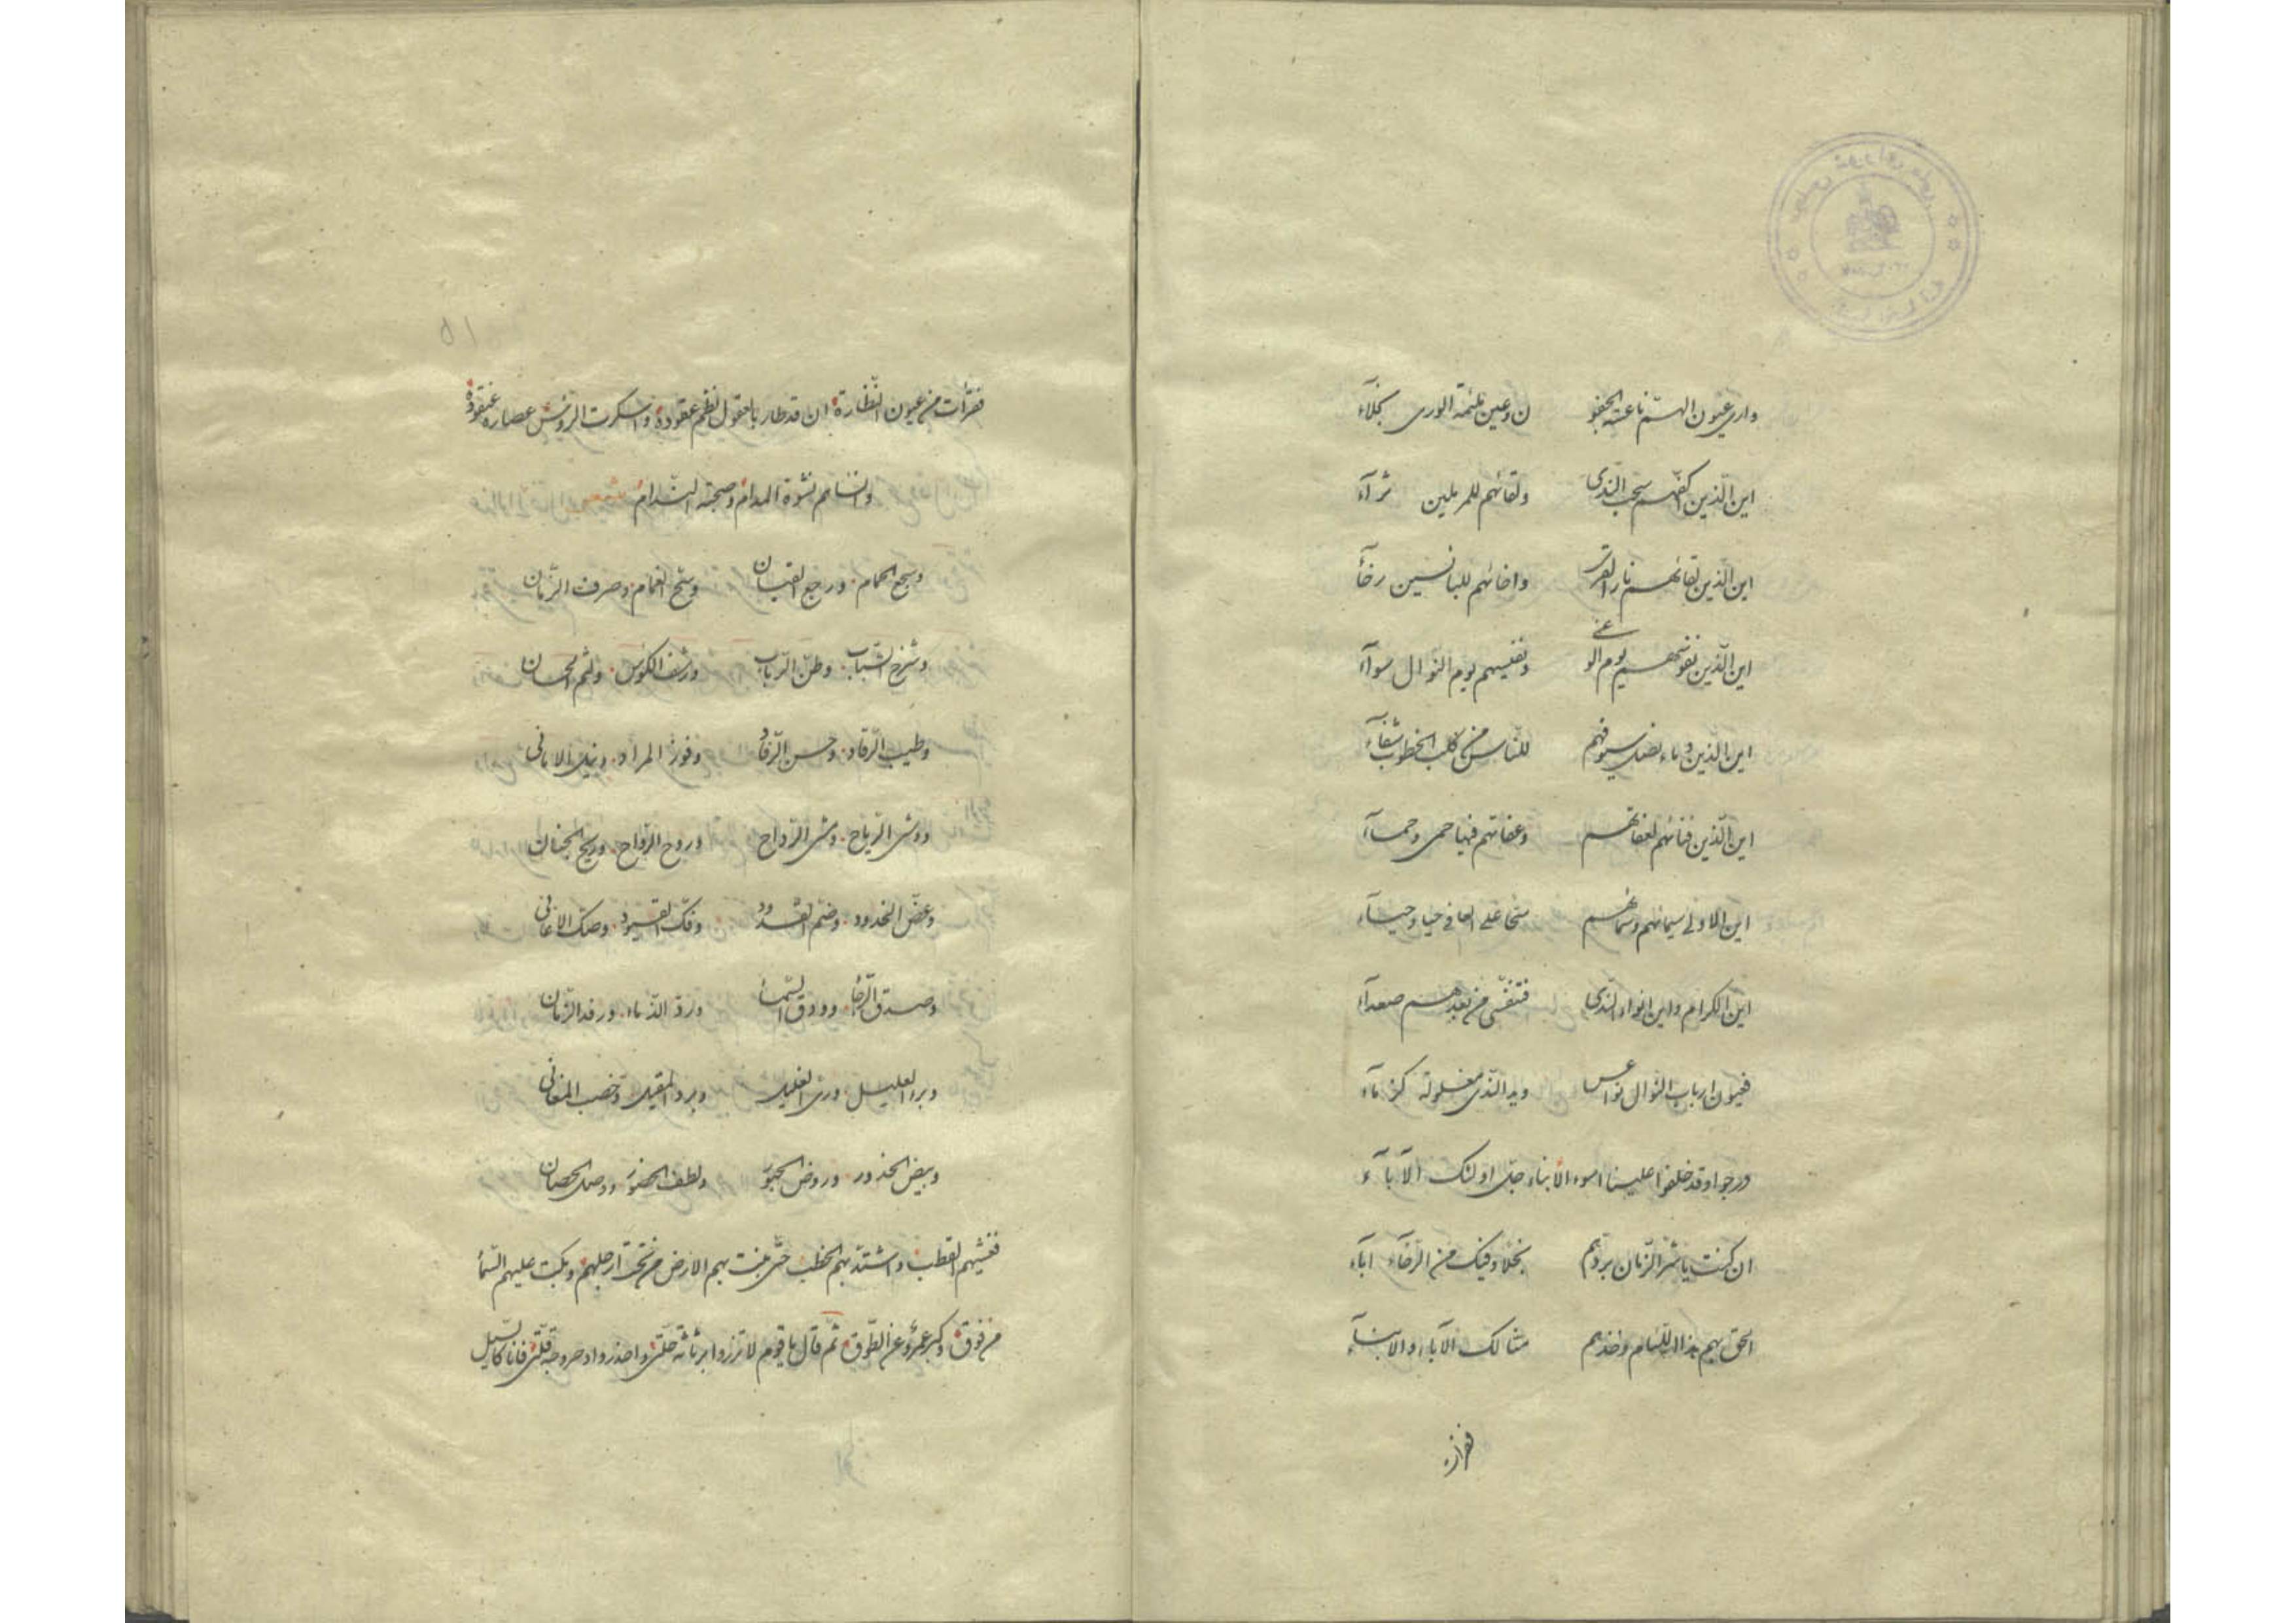 وارى عيون الهمّ ناعسة الجفو ن وعين لئمة الورى نجلآء
اين الّذين اكفّهم سحب النّدى ولقائهم للمرملين ثرآء
اين الّذين لقائهم نار القرى واخائهم للبائسين رخآء
اين الّذين نفوسهم يوم الوغى ونفيسهم يوم النّوال سوآء
اين الّذين دماء نصل سيوفهم للنّاس من كلب الخطوب شفآء
اين الّذين فنائهم لعفاتهم وعفاتهم فيها حمى وحمآء
اين الاولى سيمائهم وسمائهم سحّا على العافى حيا وحيآء
اين الكرام واين انواء النّدى فتنفّسى من بعدهم صعدآء
فعيون ارباب النّوال نواعس ويد النّدى مغلولة كزمآء
درجوا وقد خلفوا علينا اسوء الأبناء جلّ اولئك الآبآء
ان كنت يا شرّ الزّمان بردّهم بخلا وفيك من الرّخآء ابآء
الحق بهم هذا اللّئام وخذهم مثالك الآباء والابنآء
فقرأت من عيون النّظارة ان قد طار بالعقول نظم عقوده واسكرت الرّؤس عصارة عنقوده
وانساهم نشوة المدام وصحبة النّدام
وسجع الحمام ورجع القيان وسحّ الغمام وصرف الزّمان
وشرخ الشّباب وطنّ الرّباب ورشف الكؤس ولثم الحسان
وطيب الرّقاد وحسن الرّفاد وفوز المراد ونيل الامانى
ووشى الرّياح ومشى الرّداح وروح الرّواح وريح الجنان
وعضّ الخدود وضمّ القدود وفكّ القيود وصكّ الاغانى
وصدق الرّجا وودق السّما وردّ الذّماء ورفد الزّمان
وبرء العليل ورىّ الغليل وبرد المقيل وخصب المغانى
وبيض الخدور وروض الحبور ولطف الحضور ووصل الحصان
فغشيهم القطب واشتدّ بهم الخطب حتّى بغت بهم الارض من تحت ارجلهم وبكت عليهم السّمآ
من فوق وكبر عمرو عن الطّوق ثم قال يا قوم لا تزروا برثاثة حلّتى واحذروا دحروجة قلّتى فانا كالسّيل